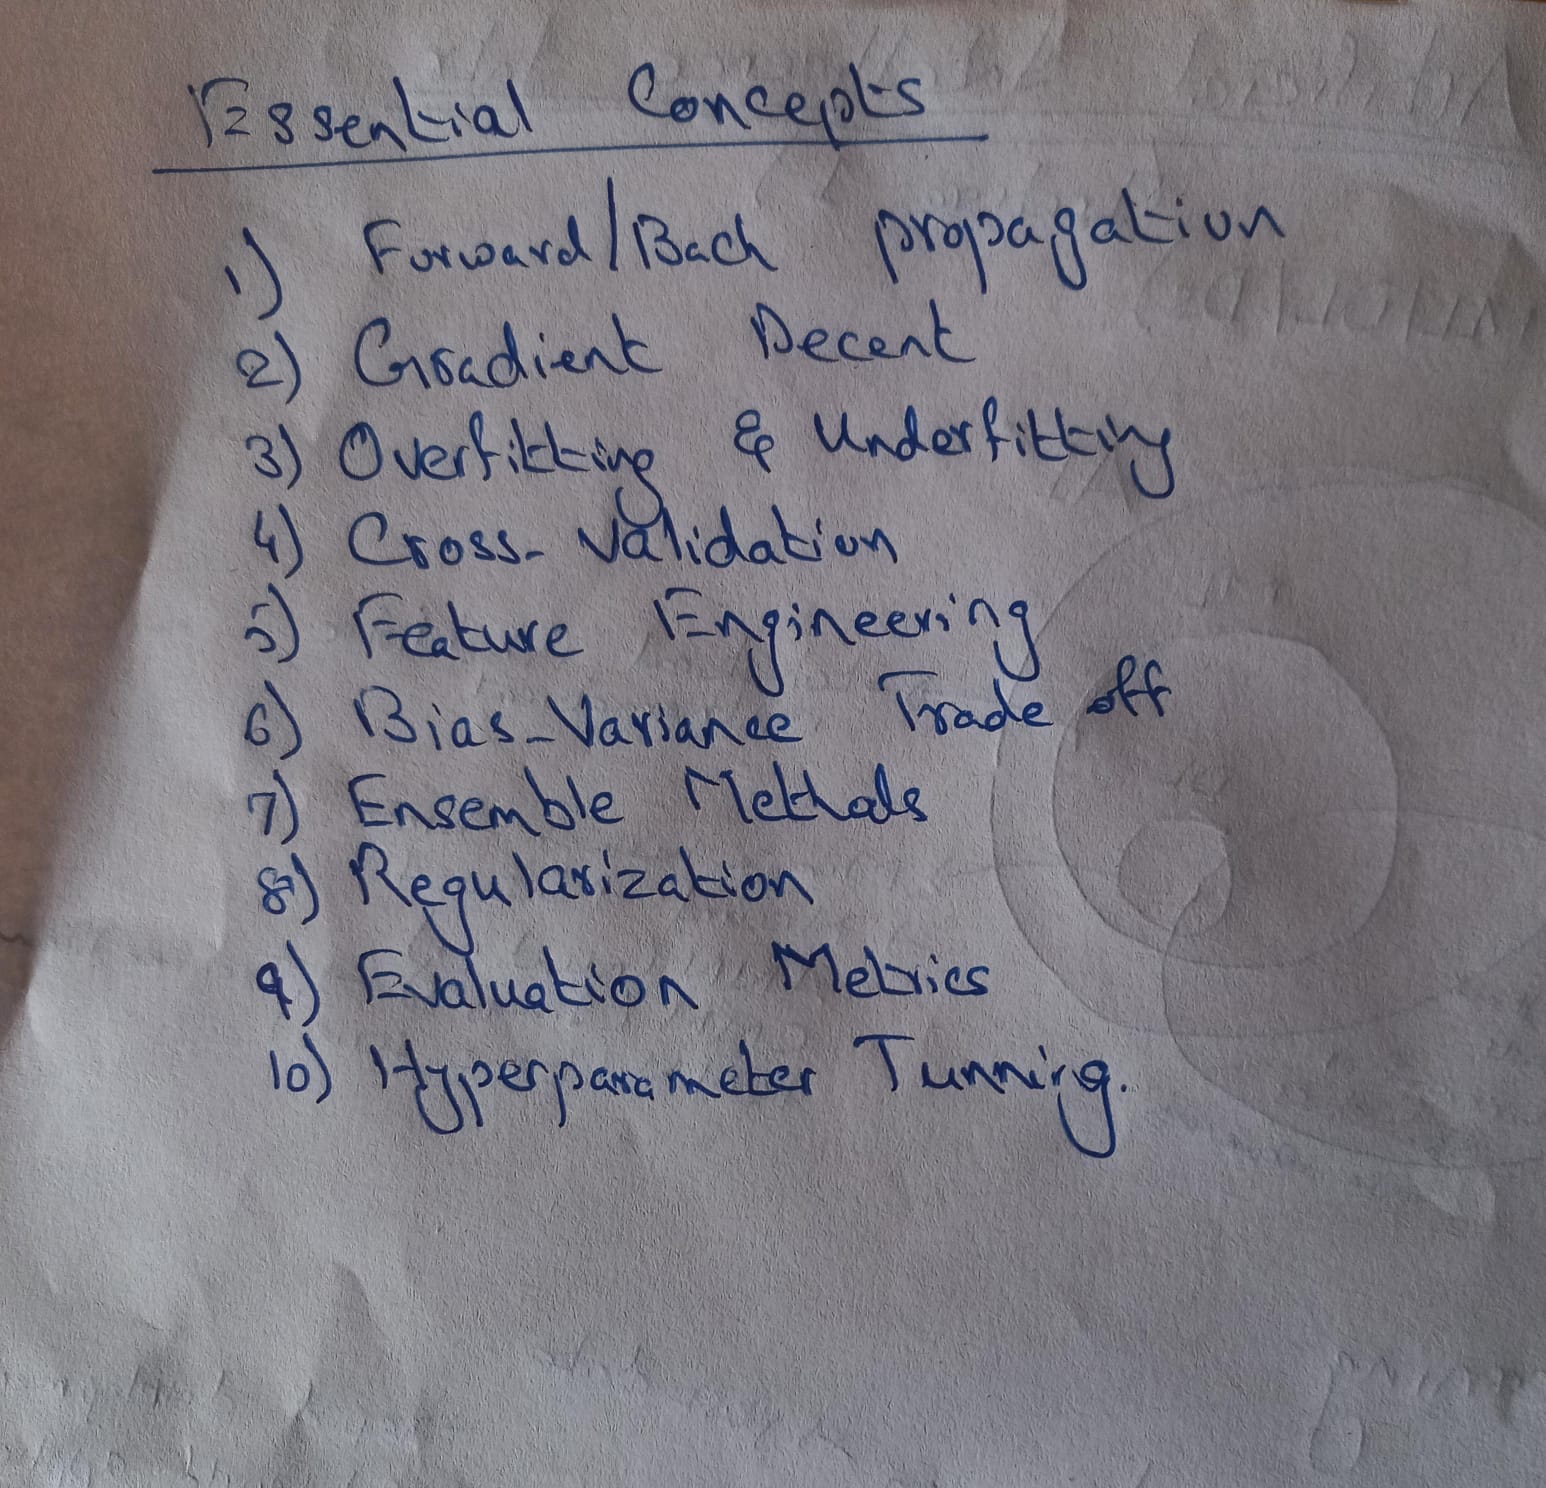 Essential Concepts
1) Forward/Back propagation
2) Gradient Decent
3) Overfitting & Underfitting
4) Cross-Validation
5) Feature Engineering
6) Bias-Variance Trade off
7) Ensemble Methods
8) Regularization
9) Evaluation Metrics
10) Hyperparameter Tunning.